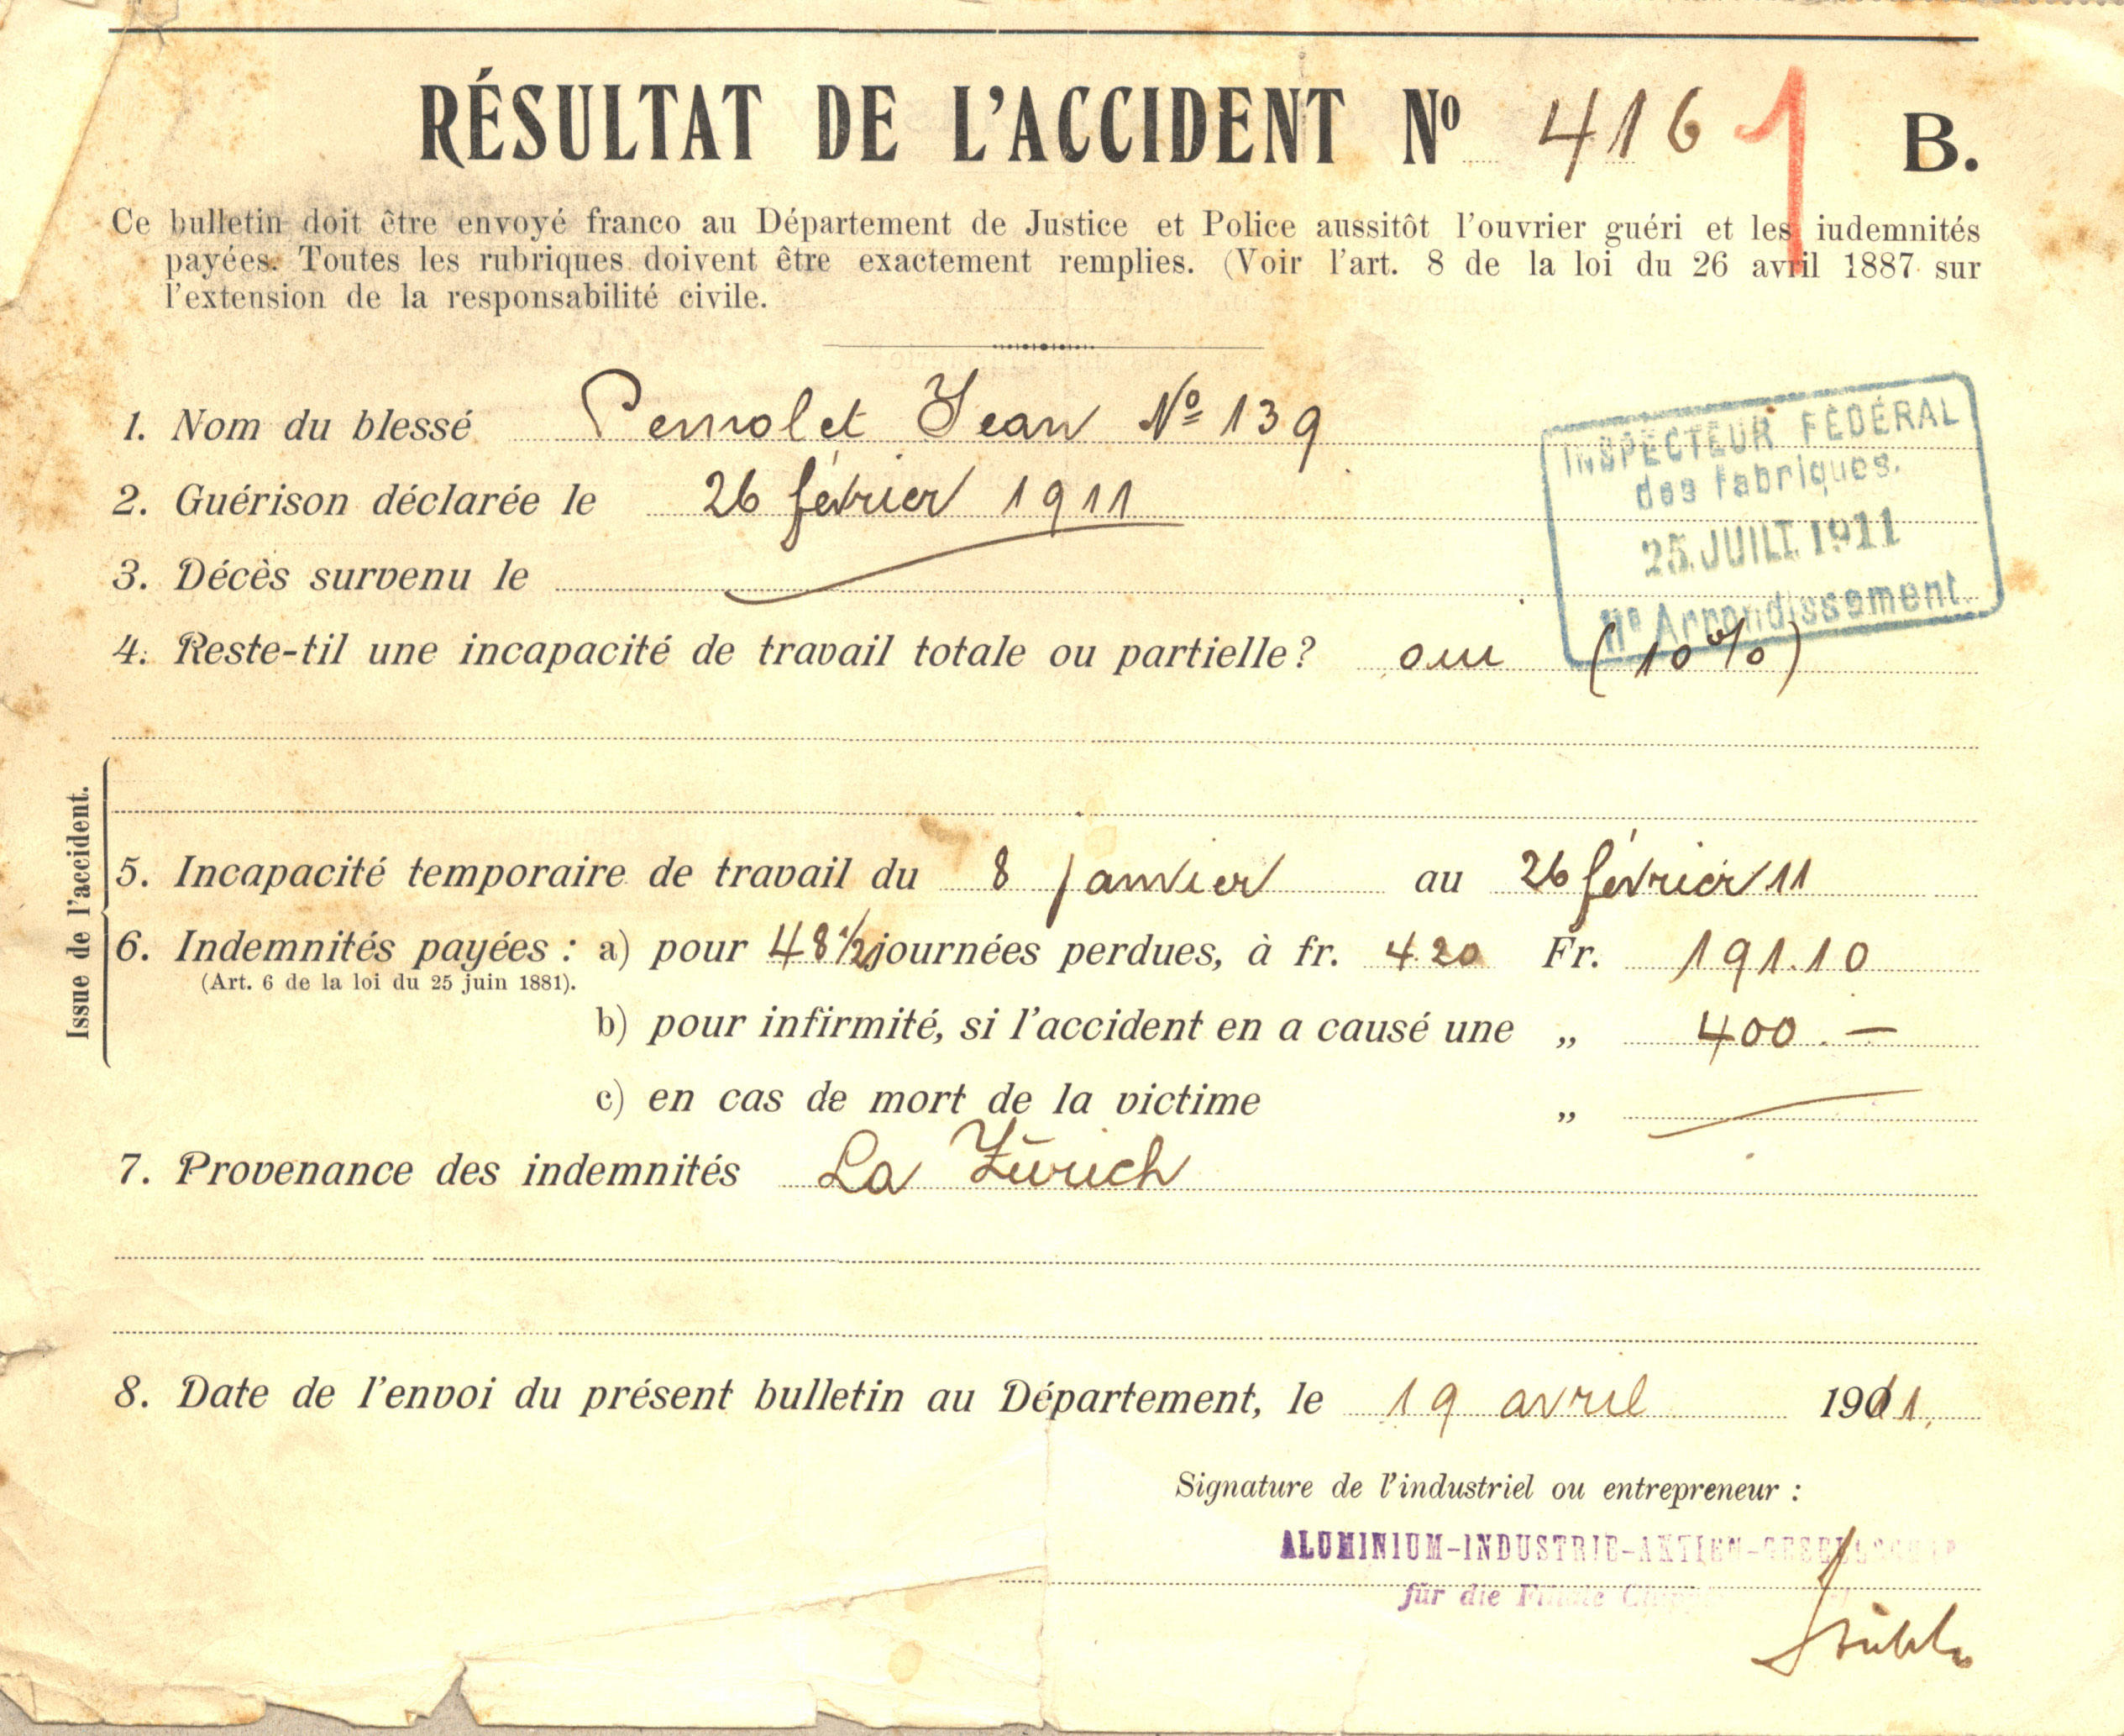 RÉSULTAT DE L'ACCIDENT Nº 4161 B.
Ce bulletin doit être envoyé franco au Département de Justice et Police aussitôt l'ouvrier guéri et les iudemnités
payées. Toutes les rubriques doivent être exactement remplies. (Voir l'art. 8 de la loi du 26 avril 1887 sur
l'extension de la responsabilité civile.
1. Nom du blessé Perrolet Jean Nº 139
INSPECTEUR FÉDÉRAL
des fabriques.
25. JUIL. 1911
IIe Arrondissement
2. Guérison déclarée le 26 février 1911
3. Décès survenu le
4. Reste-til une incapacité de travail totale ou partielle? oui (10%)
Issue de l'accident.
5. Incapacité temporaire de travail du 8 janvier au 26 février 11
6. Indemnités payées : a) pour 48 1/2 journées perdues, à fr. 4.20 Fr. 191.10
(Art. 6 de la loi du 25 juin 1881).
b) pour infirmité, si l'accident en a causé une „ 400.—
c) en cas de mort de la victime „ —
7. Provenance des indemnités La Zürich
8. Date de l'envoi du présent bulletin au Département, le 19 avril 1911.
Signature de l'industriel ou entrepreneur :
ALUMINIUM-INDUSTRIE-AKTIEN-GESELLSCHAFT
für die Filiale